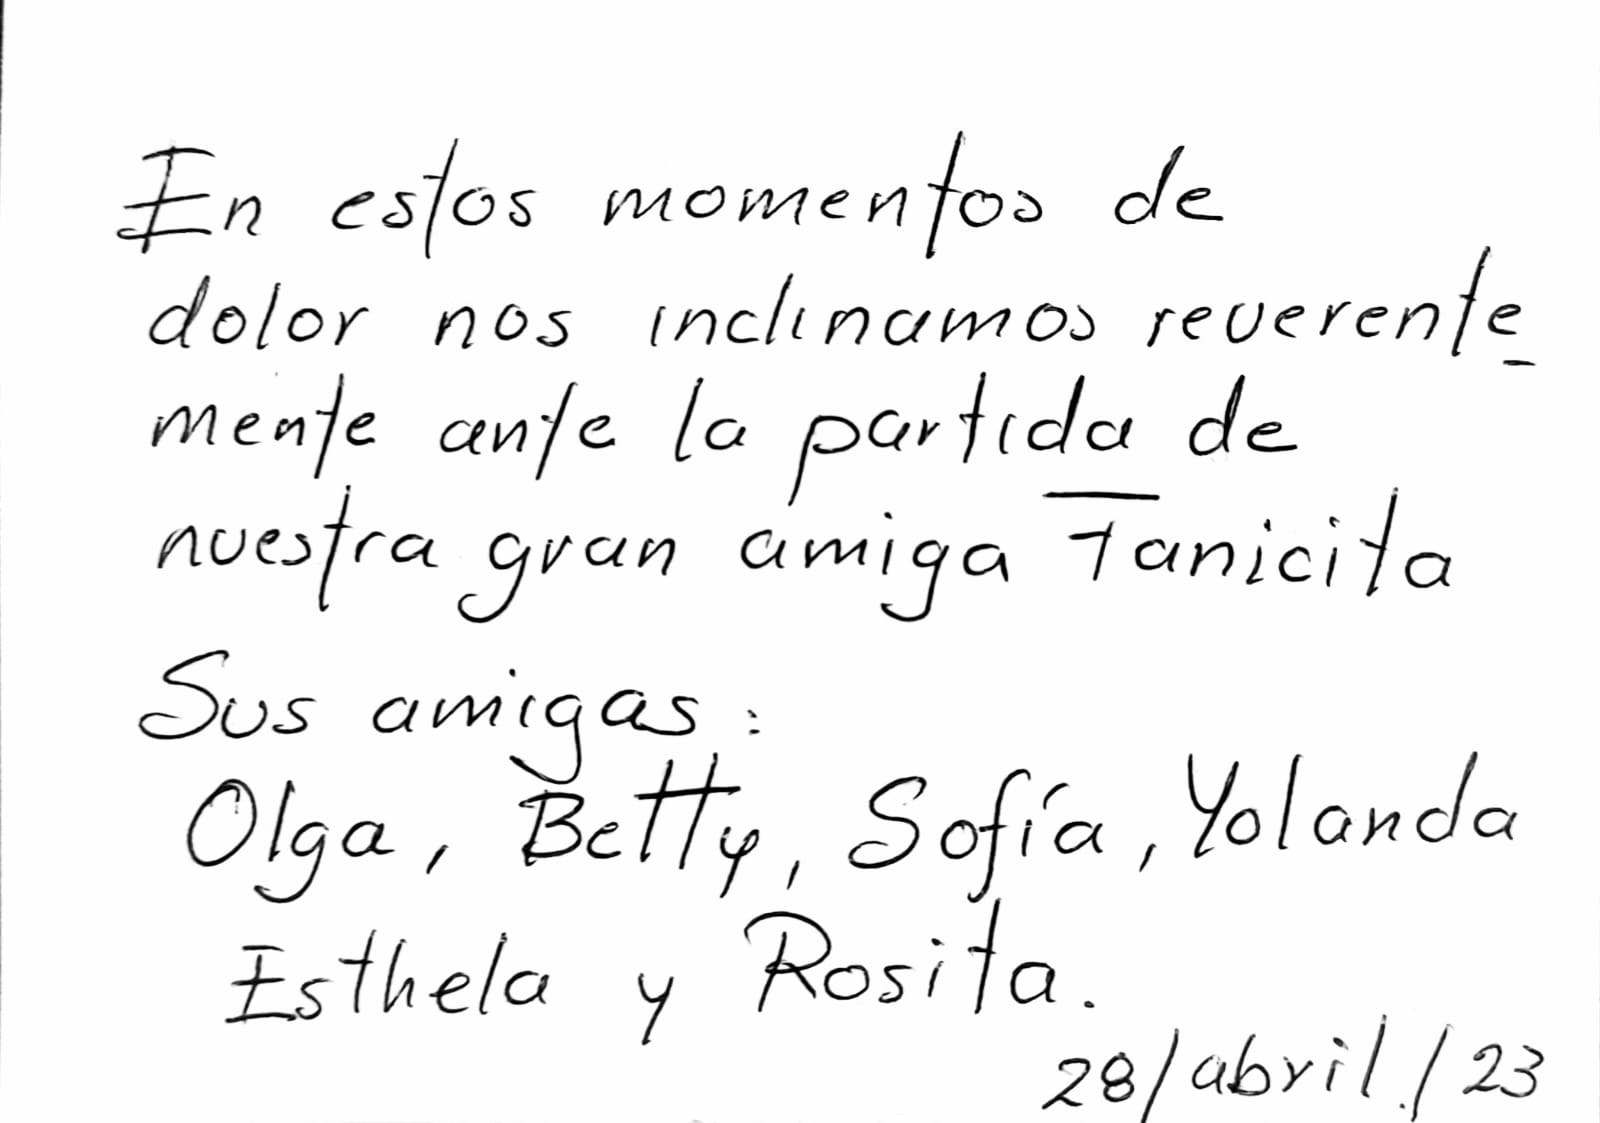 En estos momentos de
dolor nos inclinamos reverente_
mente ante la partida de
nuestra gran amiga Tanicita
Sus amigas:
Olga, Betty, Sofía, Yolanda
Esthela y Rosita.
28/abril./23